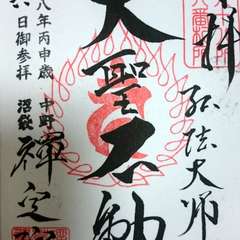 拝
弘法大師
大聖不動
中野
沼袋
禅定
八年丙申歳
日御参拝